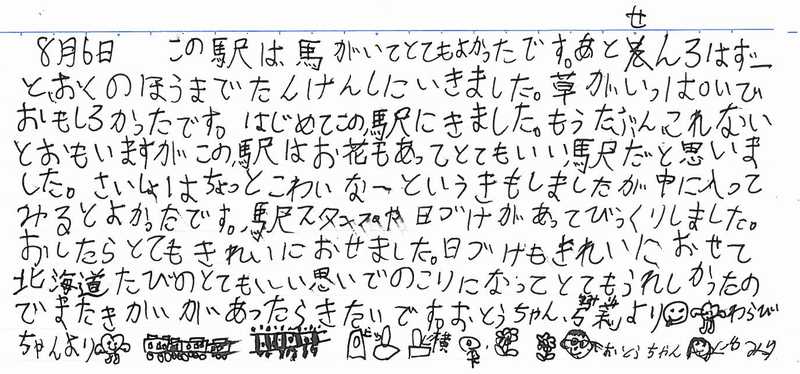 せ
8月6日 この駅は、馬がいてとてもよかったです。あとんろはずー
と、おくのほうまでたんけんしにいきました。草がいっぱいで
おもしろかったです。はじめてこの駅にきました。もうたぶんこれない
とおもいますがこの駅はお花もあってとてもいい駅だと思いま
した。さいしょはちょっとこわいなーというきもしましたが中に入って
みるとよかったです。駅スタンプや日づけがあってびっくりしました。
おしたらとてもきれいにおせました。日づけもきれいにおせて
北海道たびのとてもいい思いでのこりになってとてもうれしかったの
でまたきかいがあったらきたいです。おとうちゃん、より わらび
ちゃんより 横 おとうちゃん